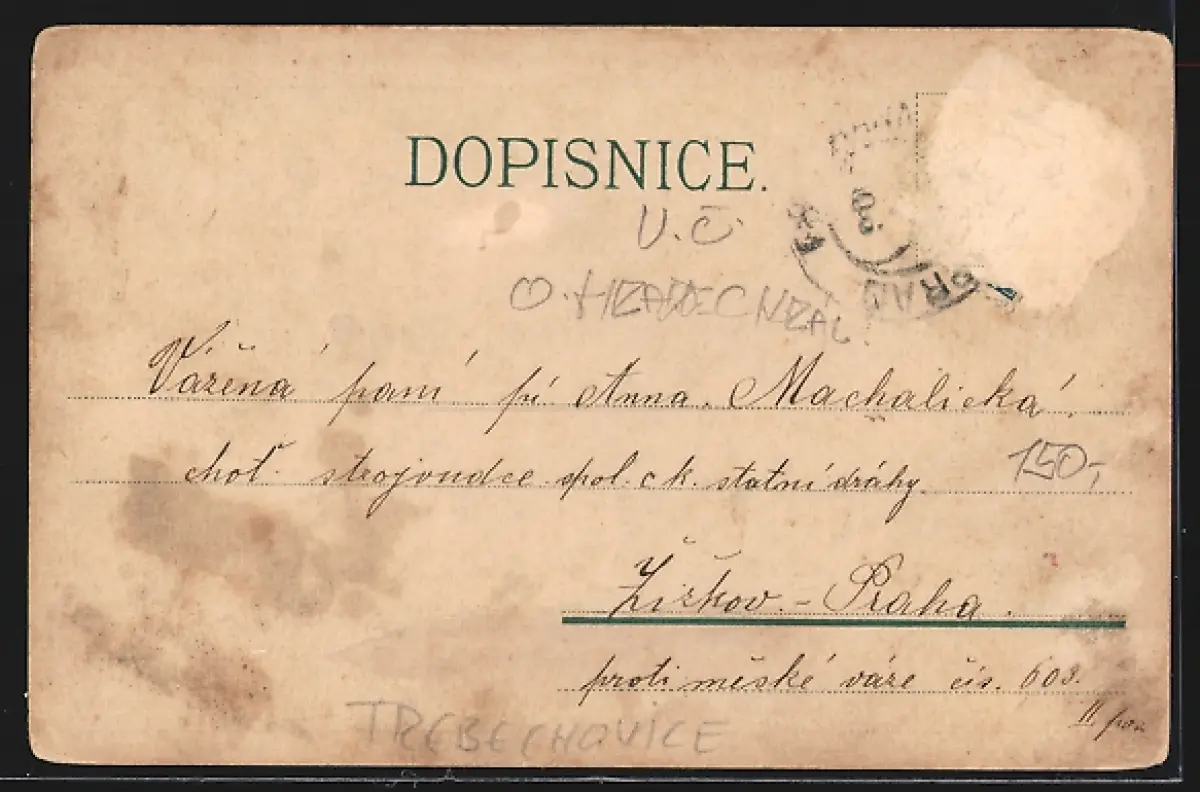 DOPISNICE.
V.Č.
O. HRADEC KRÁL.
Vážená paní pí Anna Machalická,
choť strojvůdce spol. c k. statní dráhy.
Žižkov. - Praha.
proti měské váze čís. 603.
II. 
150,-
TŘEBECHOVICE